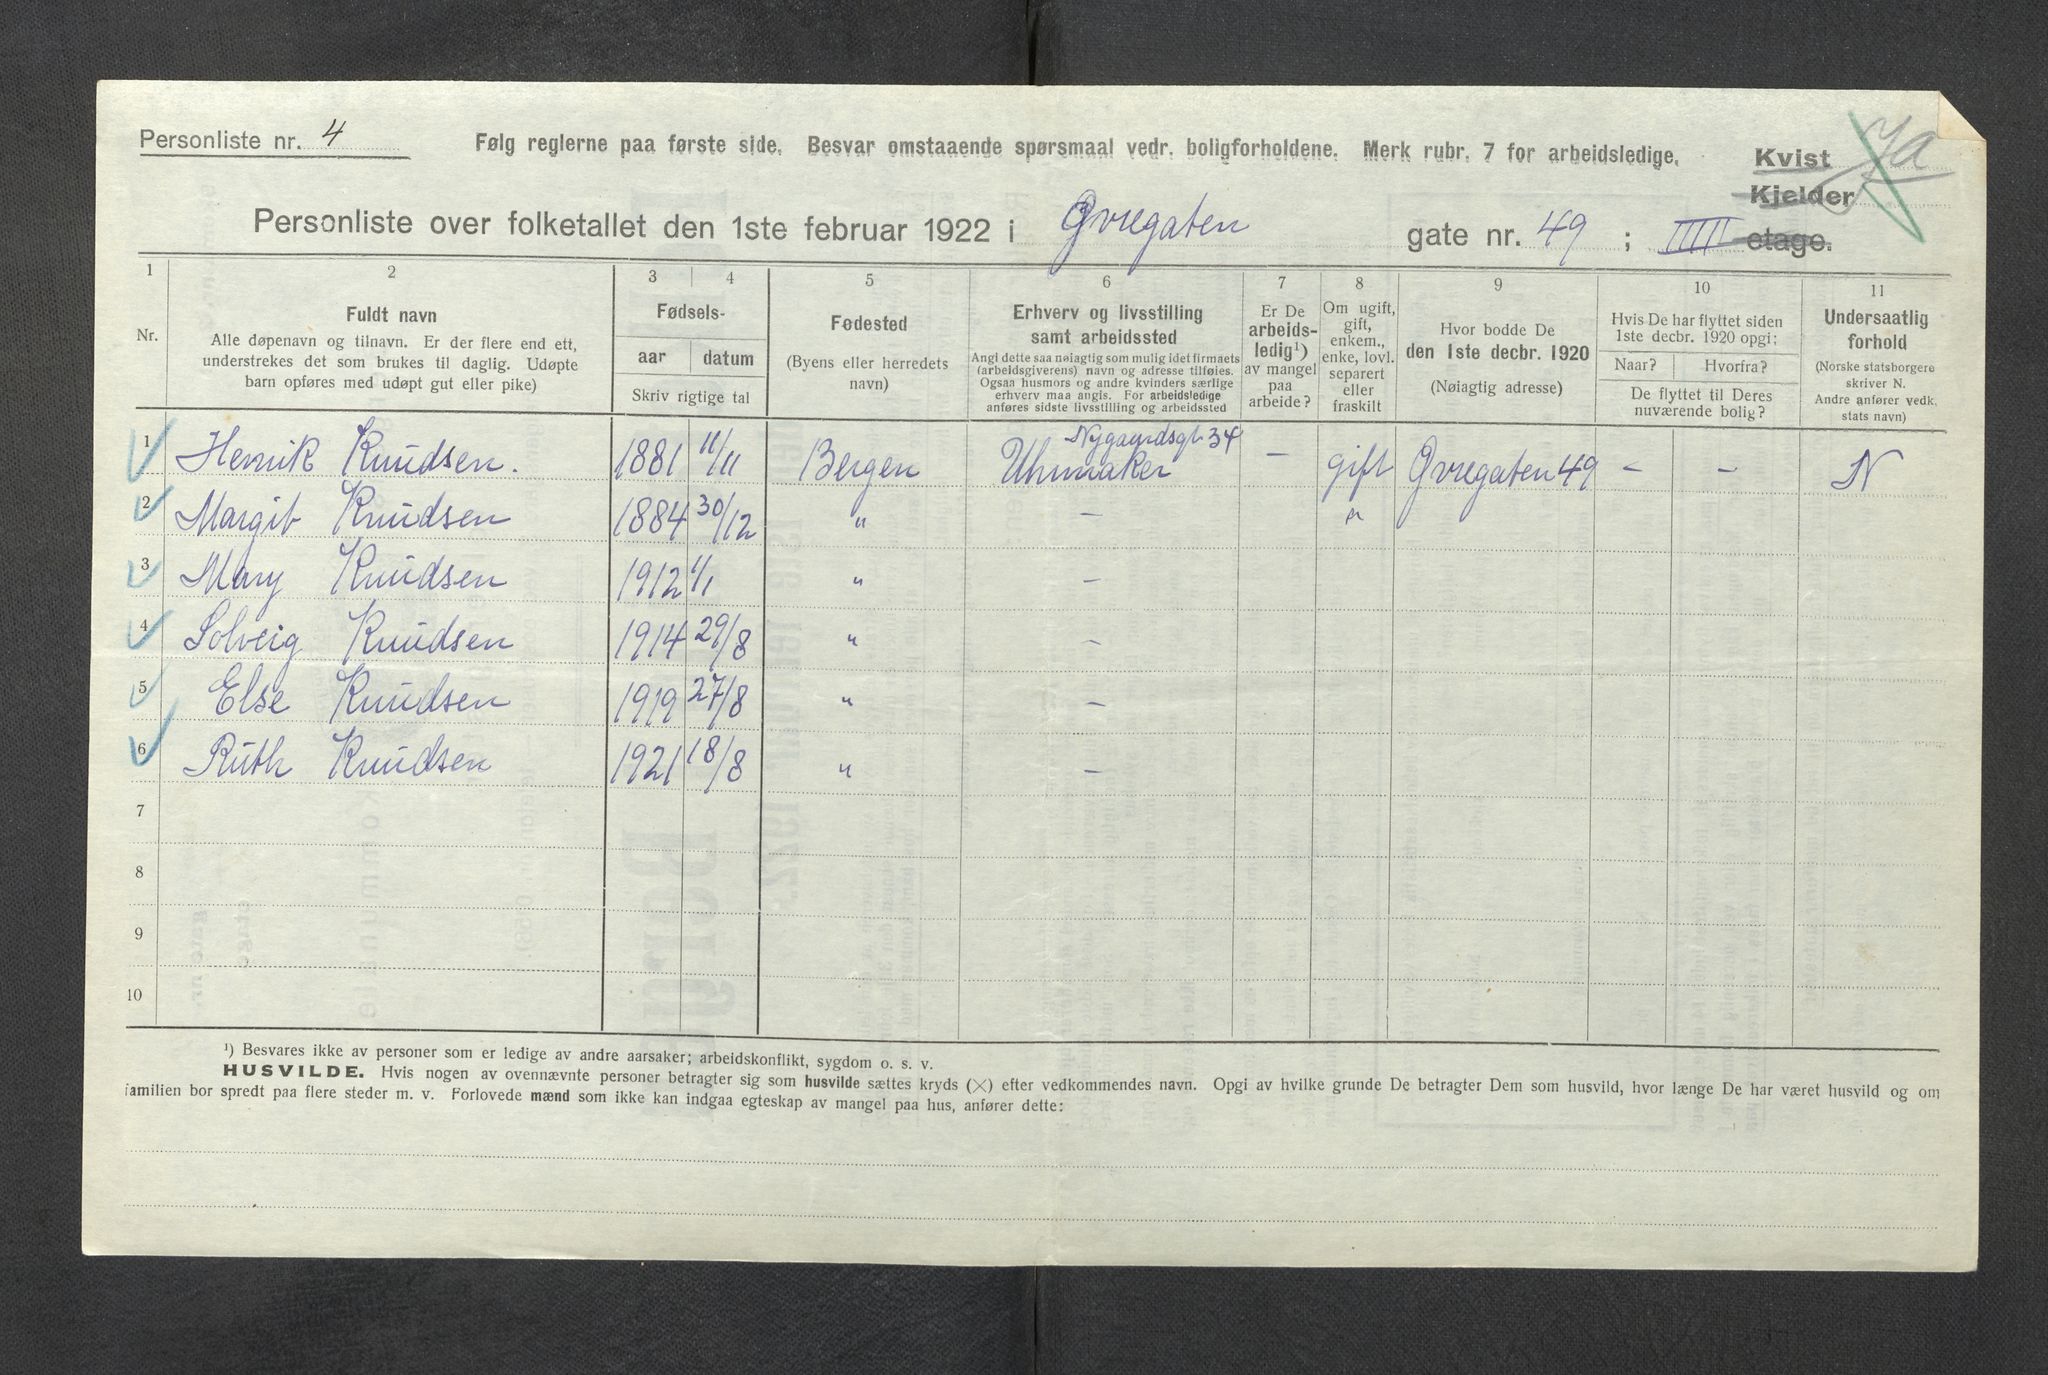 Personliste nr. 4
Følg reglerne paa første side. Besvar omstaaende spørsmaal vedr. boligforholdene. Merk rubr. 7 for arbeidsledige.
Kvist ja
Kjelder
Personliste over folketallet den 1ste februar 1922 i Øvregaten gate nr. 49 ; IIIII etage.
1 2 3 4 5 6 7 8 9 10 11
Nr.
Fuldt navn
Alle døpenavn og tilnavn. Er der flere end ett,
understrekes det som brukes til daglig. Udøpte
barn opføres med udøpt gut eller pike)
Fødsels-
aar datum
Skriv rigtige tal
Fødested
(Byens eller herredets
navn)
Erhverv og livsstilling
samt arbeidssted
Angi dette saa nøiagtig som mulig idet firmaets
(arbeidsgiverens) navn og adresse tilføies.
Ogsaa husmors og andre kvinders særlige
erhverv maa angis. For arbeidsledige
anføres sidste livsstilling og arbeidssted
Er De
arbeids-
ledig¹)
av mangel
paa
arbeide?
Om ugift,
gift,
enkem.,
enke, lovl.
separert
eller
fraskilt
Hvor bodde De
den 1ste decbr. 1920
(Nøiagtig adresse)
Hvis De har flyttet siden
1ste decbr. 1920 opgi:
Naar? Hvorfra?
De flyttet til Deres
nuværende bolig?
Undersaatlig
forhold
(Norske statsborgere
skriver N.
Andre anfører vedk.
stats navn)
Nygaardsgt 34
1 Henrik Knudsen. 1881 11/11 Bergen Uhrmaker - gift Øvregaten 49 - - N
2 Margit Knudsen 1884 30/12 " - "
3 Mary Knudsen 1912 1/1 " -
4 Solveig Knudsen 1914 29/8 " -
5 Else Knudsen 1919 27/8 " -
6 Ruth Knudsen 1921 18/8 " -
7
8
9
10
¹) Besvares ikke av personer som er ledige av andre aarsaker; arbeidskonflikt, sygdom o. s. v.
HUSVILDE. Hvis nogen av ovennævnte personer betragter sig som husvilde sættes kryds (×) efter vedkommendes navn. Opgi av hvilke grunde De betragter Dem som husvild, hvor længe De har været husvild og om
familien bor spredt paa flere steder m. v. Forlovede mænd som ikke kan indgaa egteskap av mangel paa hus, anfører dette: